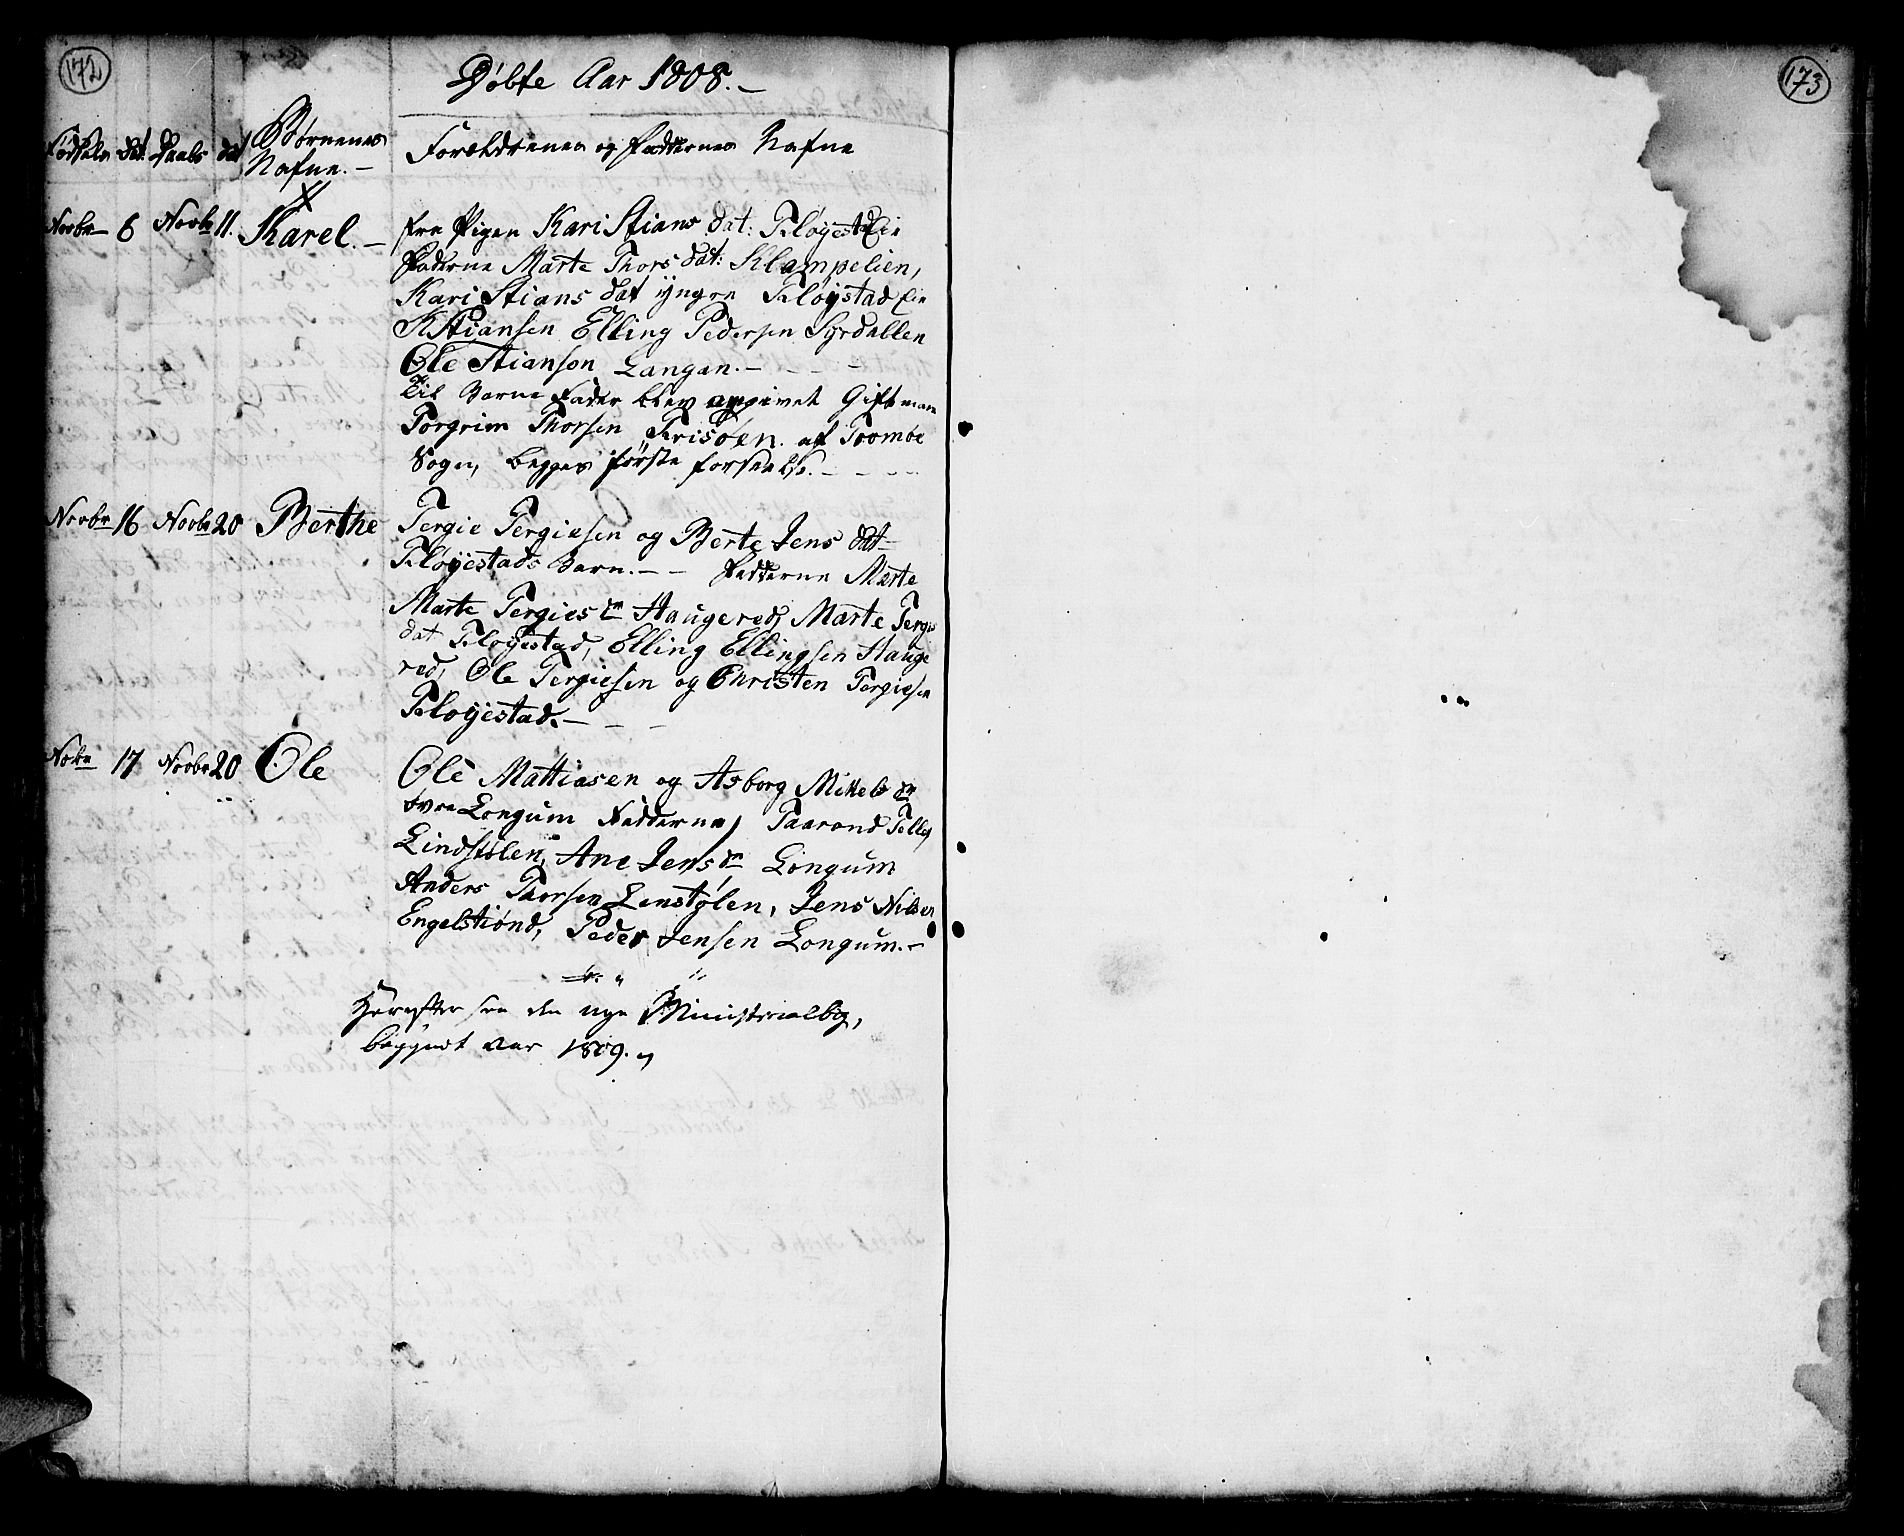 172
173
Døbte Aar 1808.-
Fødsels dat Daabs dat Børnenes Nafne.- Forældrenes og Faddernes Nafne
Novbr 6 Novbr 11. Karel.- Pigen Kari Stians dat: Fløyestad
Fadderne Marte Thors dat: Klampelien,
Kari Stians dat yngre Fløystad
Stiansen Elling Pedersen Syrdallen
Ole Stianson Langan.-
Til Barne Fader blev angivet Giftmann
Torgrim Thorsen Frisøen. af Tromøe
Sogn, begges første forseelse.-
Novbr 16 Novbr 20 Berthe Tergie Tergiesen og Berte Jens dat
Fløyestads Barn.- - Fadderne Marte
Marte Tergies dr Haugered, Marte Tergis
dat Fløyestad, Elling Ellingsen Hauge
red, Ole Tergiesen og Christen Tergiesen
Fløyestad.-
Nobr 17 Novbr 20 Ole Ole Mattiasen og Asborg Mikels dr
øvre Longum Fadderne, Taarond Tellef
Lindstølen, Ane Jens dr Longum
Anders Thorsen Lenstølen, Jens Nilsen
Engelstiønd, Peder Jensen Longum.-
Herefter see den nye Ministrialbog,
begyndt aar 1809.